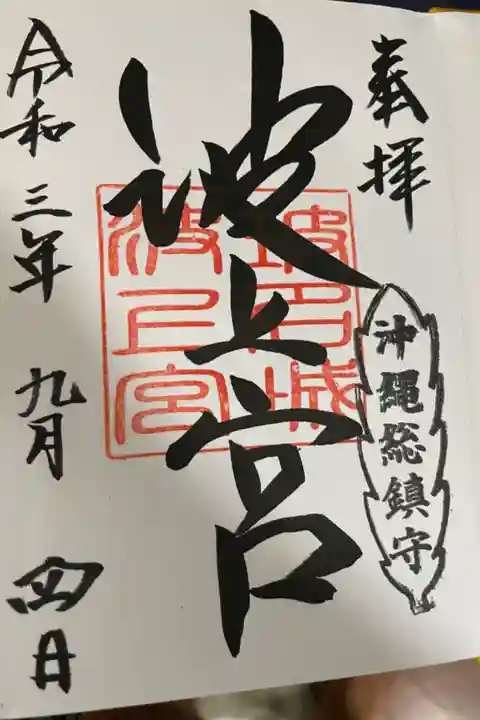 奉拝
沖縄総鎮守
波上宮
波上宮
令和三年九月四日